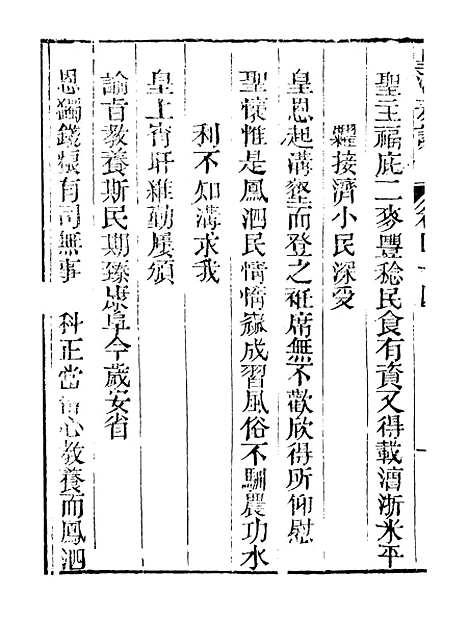 聖主福庇二麥豐稔民食有資又得載濟浙米平
糶接濟小民深受
皇恩起溝壑而登之袵席無不歡欣得所仰慰
聖懷惟是鳳泗民情惰窳成習風俗不馴農功水
利不知溝求我
皇上宵旰維勤屢頒
諭旨教養斯民期臻康阜今歲安省
恩蠲錢糧有司無事 科正當畱心教養而鳳泗